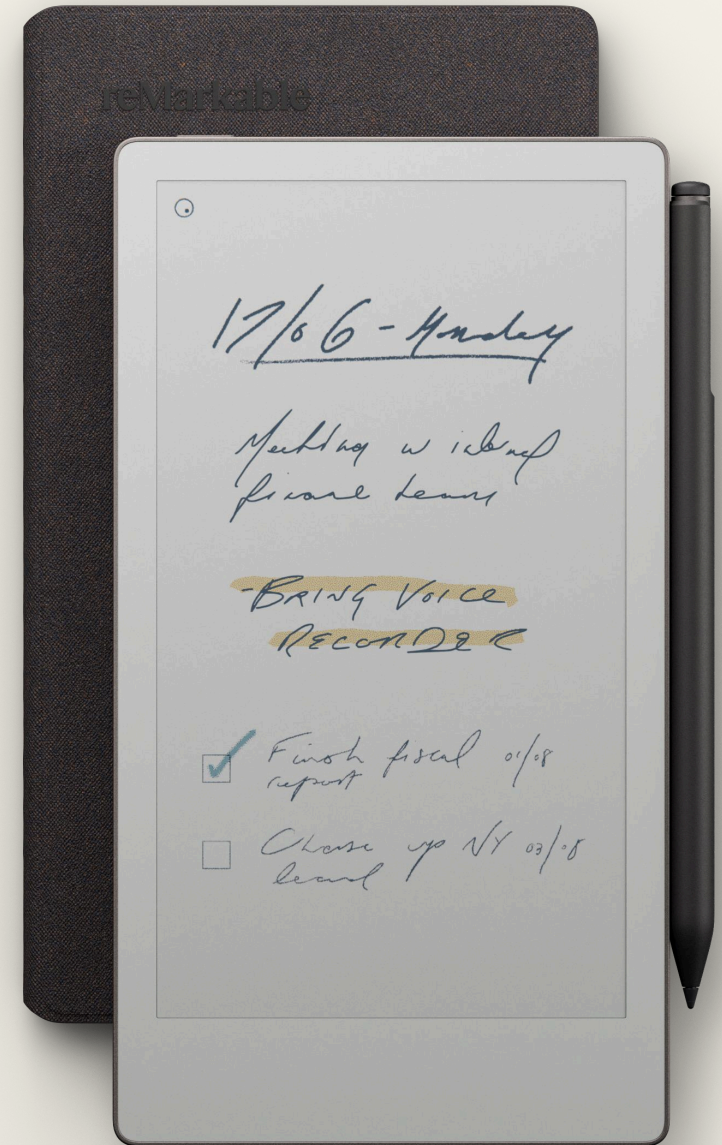 reMarkable
17/06 - Monday
Meeting w internal
finance team
- BRING VOICE
RECORDER
Finish fiscal 01/08
report
Chase up NY 03/08